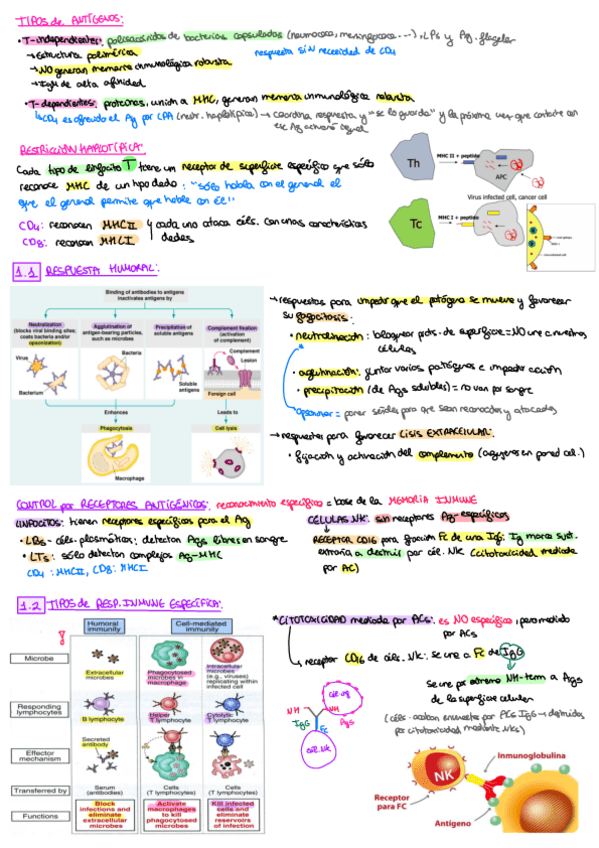 TIPOS de ANTÍGENOS:
• T-independientes: polisacáridos de bacterias capsuladas (neumococo, meningococo...), LPs y Ag. flagelar
→ Estructura polimérica
respuesta SIN necesidad de CD4
→ NO generan memoria inmunológica robusta
→ IgM de alta afinidad
• T-dependientes: proteínas, unión a MHC, generan memoria inmunológica robusta
CD4 es ofrecido el Ag por CPA (restr. haplotípica) → coordina respuesta y "se lo guarda" y la próxima vez que contacte con
ese Ag actuará igual
RESTRICCIÓN HAPLOTÍPICA:
Cada tipo de linfocito T tiene un receptor de superficie específico que sólo
reconoce MHC de un tipo dado: "sólo habla con el general el
que el general permite que hable con él"
CD4: reconocen MHCII
CD8: reconocen MHCI
y cada uno ataca céls. con unas características
dadas
Th
MHC II + peptide
APC
Virus infected cell, cancer cell
Tc
MHC I + peptide
1.1 RESPUESTA HUMORAL:
Binding of antibodies to antigens
inactivates antigens by
Neutralization
(blocks viral binding sites;
coats bacteria and/or
opsonization)
Agglutination of
antigen-bearing particles,
such as microbes
Precipitation of
soluble antigens
Complement fixation
(activation
of complement)
Virus
Bacterium
Bacteria
Soluble
antigens
Complement
Lesion
Foreign cell
Enhances
Leads to
Phagocytosis
Cell lysis
Macrophage
→ respuestas para impedir que el patógeno se mueva y favorecer
su fagocitosis:
• neutralización: bloquear prots. de superficie = NO une a nuestras
células
• aglutinación: juntar varios patógenos e impedir acción
• precipitación (de Ags solubles) = no van por sangre
opsonizar = poner señales para que sean reconocidos y atacados
→ respuestas para favorecer LISIS EXTRACELULAR:
• fijación y activación del complemento (agujeros en pared cel.)
CONTROL por RECEPTORES ANTIGÉNICOS: reconocimiento específico = base de la MEMORIA INMUNE
LINFOCITOS: tienen receptores específicos para el Ag
• LBs - céls. plasmáticas: detectan Ags libres en sangre
• LTs: sólo detectan complejos Ag-MHC
CD4: MHCII, CD8: MHCI
CÉLULAS NK: sin receptores Ag-específicos
RECEPTOR CD16 para fijación Fc de una IgG: Ig marca sust.
extraña a destruir por cél. NK (citotoxicidad mediada
por AC)
1.2 TIPOS de RESP. INMUNE ESPECÍFICA:
Humoral
immunity
Cell-mediated
immunity
Microbe
Extracellular
microbes
Phagocytosed
microbes in
macrophage
Intracellular
microbes
(e.g., viruses)
replicating within
infected cell
Responding
lymphocytes
B lymphocyte
Helper
T lymphocyte
Cytolytic
T lymphocyte
Effector
mechanism
Secreted
antibody
Transferred by
Serum
(antibodies)
Cells
(T lymphocytes)
Cells
(T lymphocytes)
Functions
Block
infections and
eliminate
extracellular
microbes
Activate
macrophages
to kill
phagocytosed
microbes
Kill infected
cells and
eliminate
reservoirs
of infection
*CITOTOXICIDAD mediada por ACs: es NO específica, pero mediado
por ACs
→ receptor CD16 de céls. NK: se une a Fc de IgG
se une por extremo NH-term a Ags
de la superficie celular
(céls. acaban envueltas por ACs IgG → destruidas
por citotoxicidad mediante NKs)
NH
NH
IgG
Fc
Ags
cél. NK
NK
Inmunoglobulina
Receptor
para FC
Antígeno